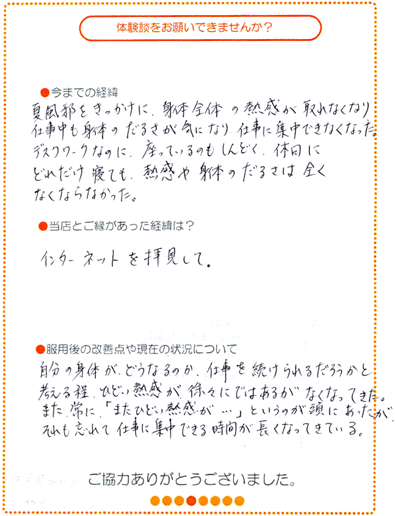 体験談をお願いできませんか?
●今までの経緯
夏風邪をきっかけに、身体全体の熱感が取れなくなり
仕事中も身体のだるさが気になり仕事に集中できなくなった。
デスクワークなのに、座っているのもしんどく、休日に
どれだけ寝ても、熱感や身体のだるさは全く
なくならなかった。
●当店とご縁があった経緯は?
インターネットを拝見して。
●服用後の改善点や現在の状況について
自分の身体が、どうなるのか、仕事を続けられるだろうかと
考える程、ひどい熱感が徐々にではあるがなくなってきた。
また、常に、「またひどい熱感が…」というのが頭にあったが、
それも忘れて仕事に集中できる時間が長くなってきている。
ご協力ありがとうございました。